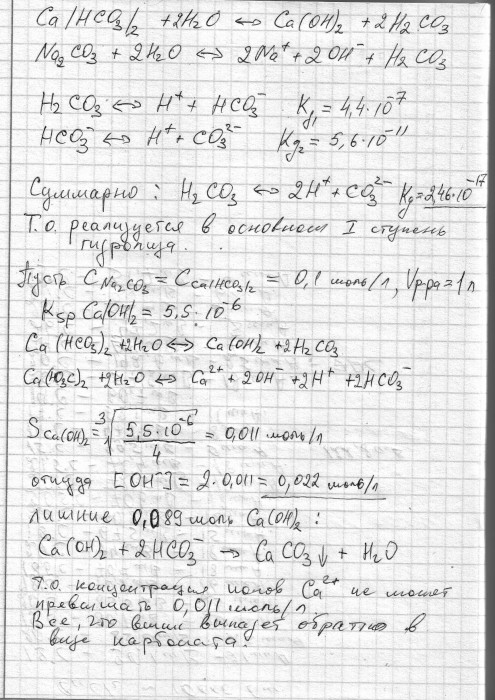 Ca(HCO₃)₂ + 2H₂O ↔ Ca(OH)₂ + 2H₂CO₃
Na₂CO₃ + 2H₂O ↔ 2Na⁺ + 2OH⁻ + H₂CO₃
H₂CO₃ ↔ H⁺ + HCO₃⁻ Kg₁ = 4,4·10⁻⁷
HCO₃⁻ ↔ H⁺ + CO₃²⁻ Kg₂ = 5,6·10⁻¹¹
Суммарно: H₂CO₃ ↔ 2H⁺ + CO₃²⁻ Kg = 2,46·10⁻¹⁷
Т.о. реализуется в основном I ступень
гидролиза.
Пусть C Na₂CO₃ = C Ca(HCO₃)₂ = 0,1 моль/л, Vр-ра = 1л
Ksp Ca(OH)₂ = 5,5·10⁻⁶
Ca(HCO₃)₂ + 2H₂O ↔ Ca(OH)₂ + 2H₂CO₃
Ca(HO₃C)₂ + 2H₂O ↔ Ca²⁺ + 2OH⁻ + 2H⁺ + 2HCO₃⁻
S Ca(OH)₂ = ³√(5,5·10⁻⁶/4) = 0,011 моль/л
откуда [OH⁻] = 2·0,011 = 0,022 моль/л
лишние 0,089 моль Ca(OH)₂:
Ca(OH)₂ + 2HCO₃⁻ → CaCO₃↓ + H₂O
Т.о. концентрация ионов Ca²⁺ не может
превышать 0,011 моль/л.
Все, что выше выпадет обратно в
виде карбоната.